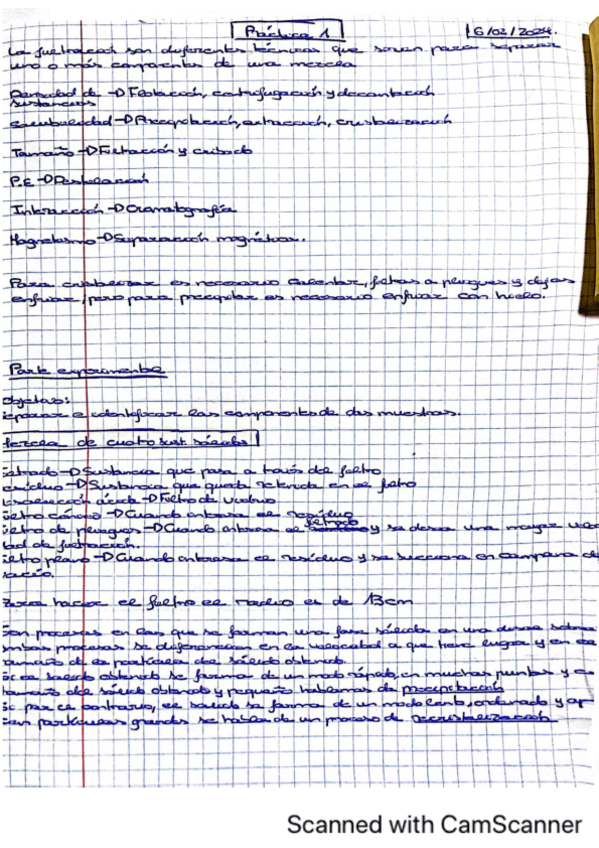 Práctica 1 16/02/2024.
La son diferentes técnicas que sirven para separar
uno o más componentes de una mezcla
Densidad de → Filtración, centrifugación y decantación
sustancias
→ Precipitación, extracción, cristalización
Tamaño → Filtración y cribado
P.E → Destilación
Interacción → Cromatografía
Magnetismo → Separación magnética.
Para cristalizar es necesario calentar, filtrar a pliegues y dejar
enfriar, pero para precipitar es necesario enfriar con hielo.
Parte experimental
Objetivo:
separar e identificar los componentes de dos muestras.
Mezcla de cuatro sust. sólidas
iltrado → Sustancia que pasa a través del filtro
esiduo → Sustancia que queda retenida en el filtro
ácida → Filtro de vidrio
iltro cónico → Cuando interesa el residuo
iltro de pliegues → Cuando interesa el filtrado y se desea una mayor
dad de filtración.
iltro plano → Cuando interesa el residuo y se succiona en campana de
vacío.
Para hacer el filtro el radio es de 13cm
Son procesos en los que se forman una fase sólida en una
ambos procesos se diferencian en la velocidad a que tiene lugar y en el
tamaño de la partícula del sólido obtenido.
Si el sólido obtenido se forma de un modo rápido, en muchos puntos y el
tamaño del sólido obtenido y pequeño hablamos de precipitación
Si por el contrario, el sólido se forma de un modo lento, ordenado y
partículas grandes se habla de un proceso de recristalización
Scanned with CamScanner